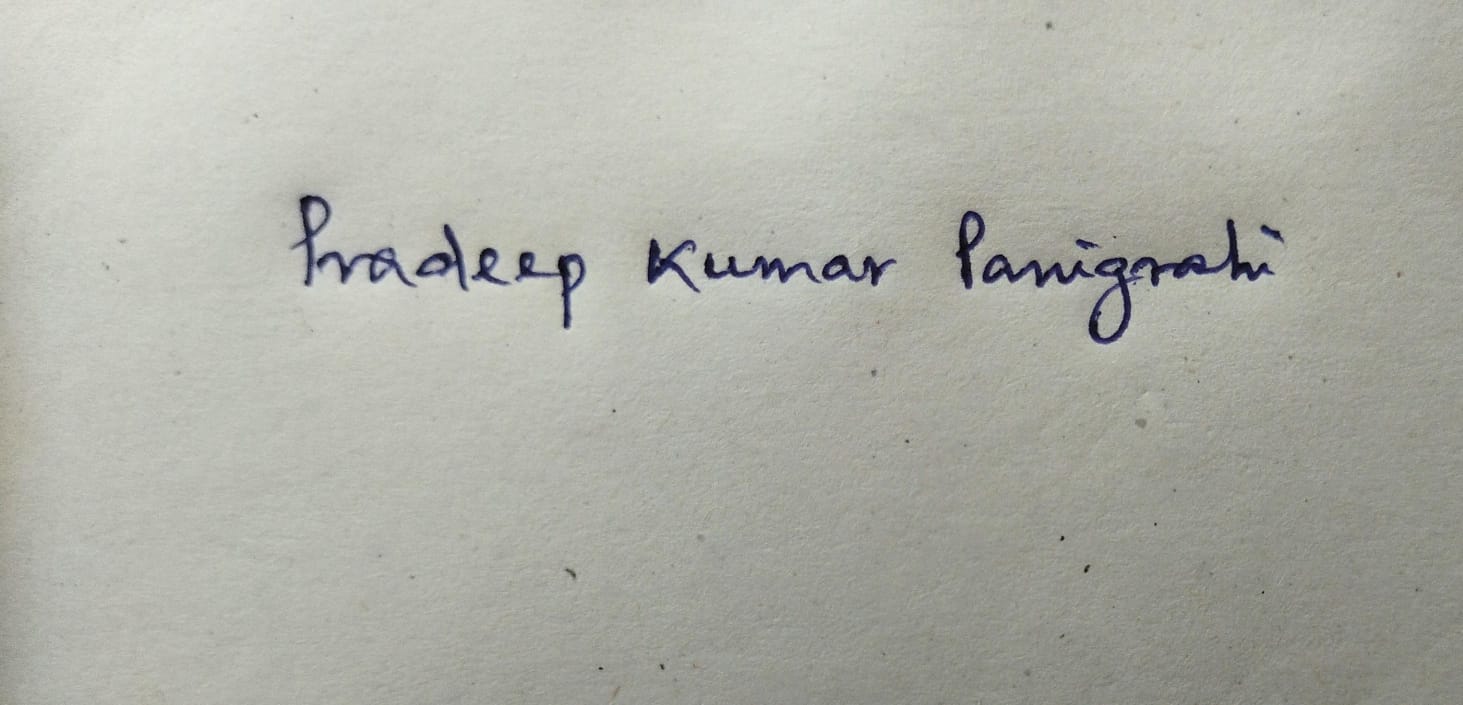 Pradeep Kumar Panigrahi